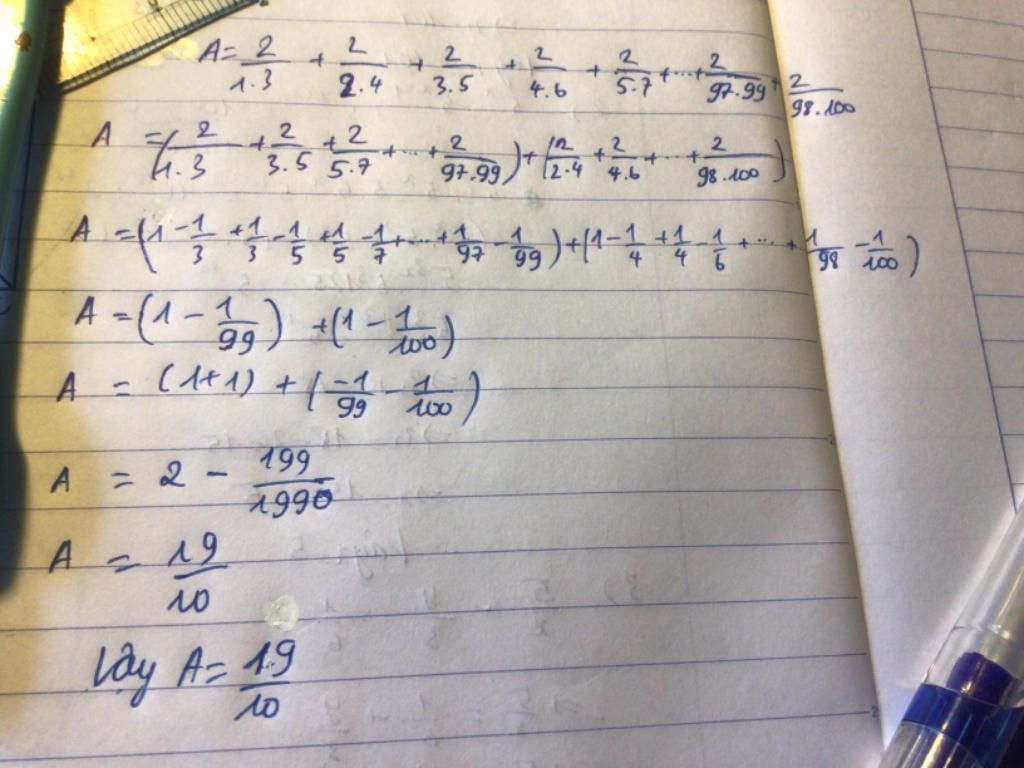 A = 2/1.3 + 2/2.4 + 2/3.5 + 2/4.6 + 2/5.7 + ... + 2/97.99 + 2/98.100
A = (2/1.3 + 2/3.5 + 2/5.7 + ... + 2/97.99) + (2/2.4 + 2/4.6 + ... + 2/98.100)
A = (1 - 1/3 + 1/3 - 1/5 + 1/5 - 1/7 + ... + 1/97 - 1/99) + (1 - 1/4 + 1/4 - 1/6 + ... + 1/98 - 1/100)
A = (1 - 1/99) + (1 - 1/100)
A = (1+1) + (-1/99 - 1/100)
A = 2 - 199/1990
A = 19/10
Vậy A = 19/10